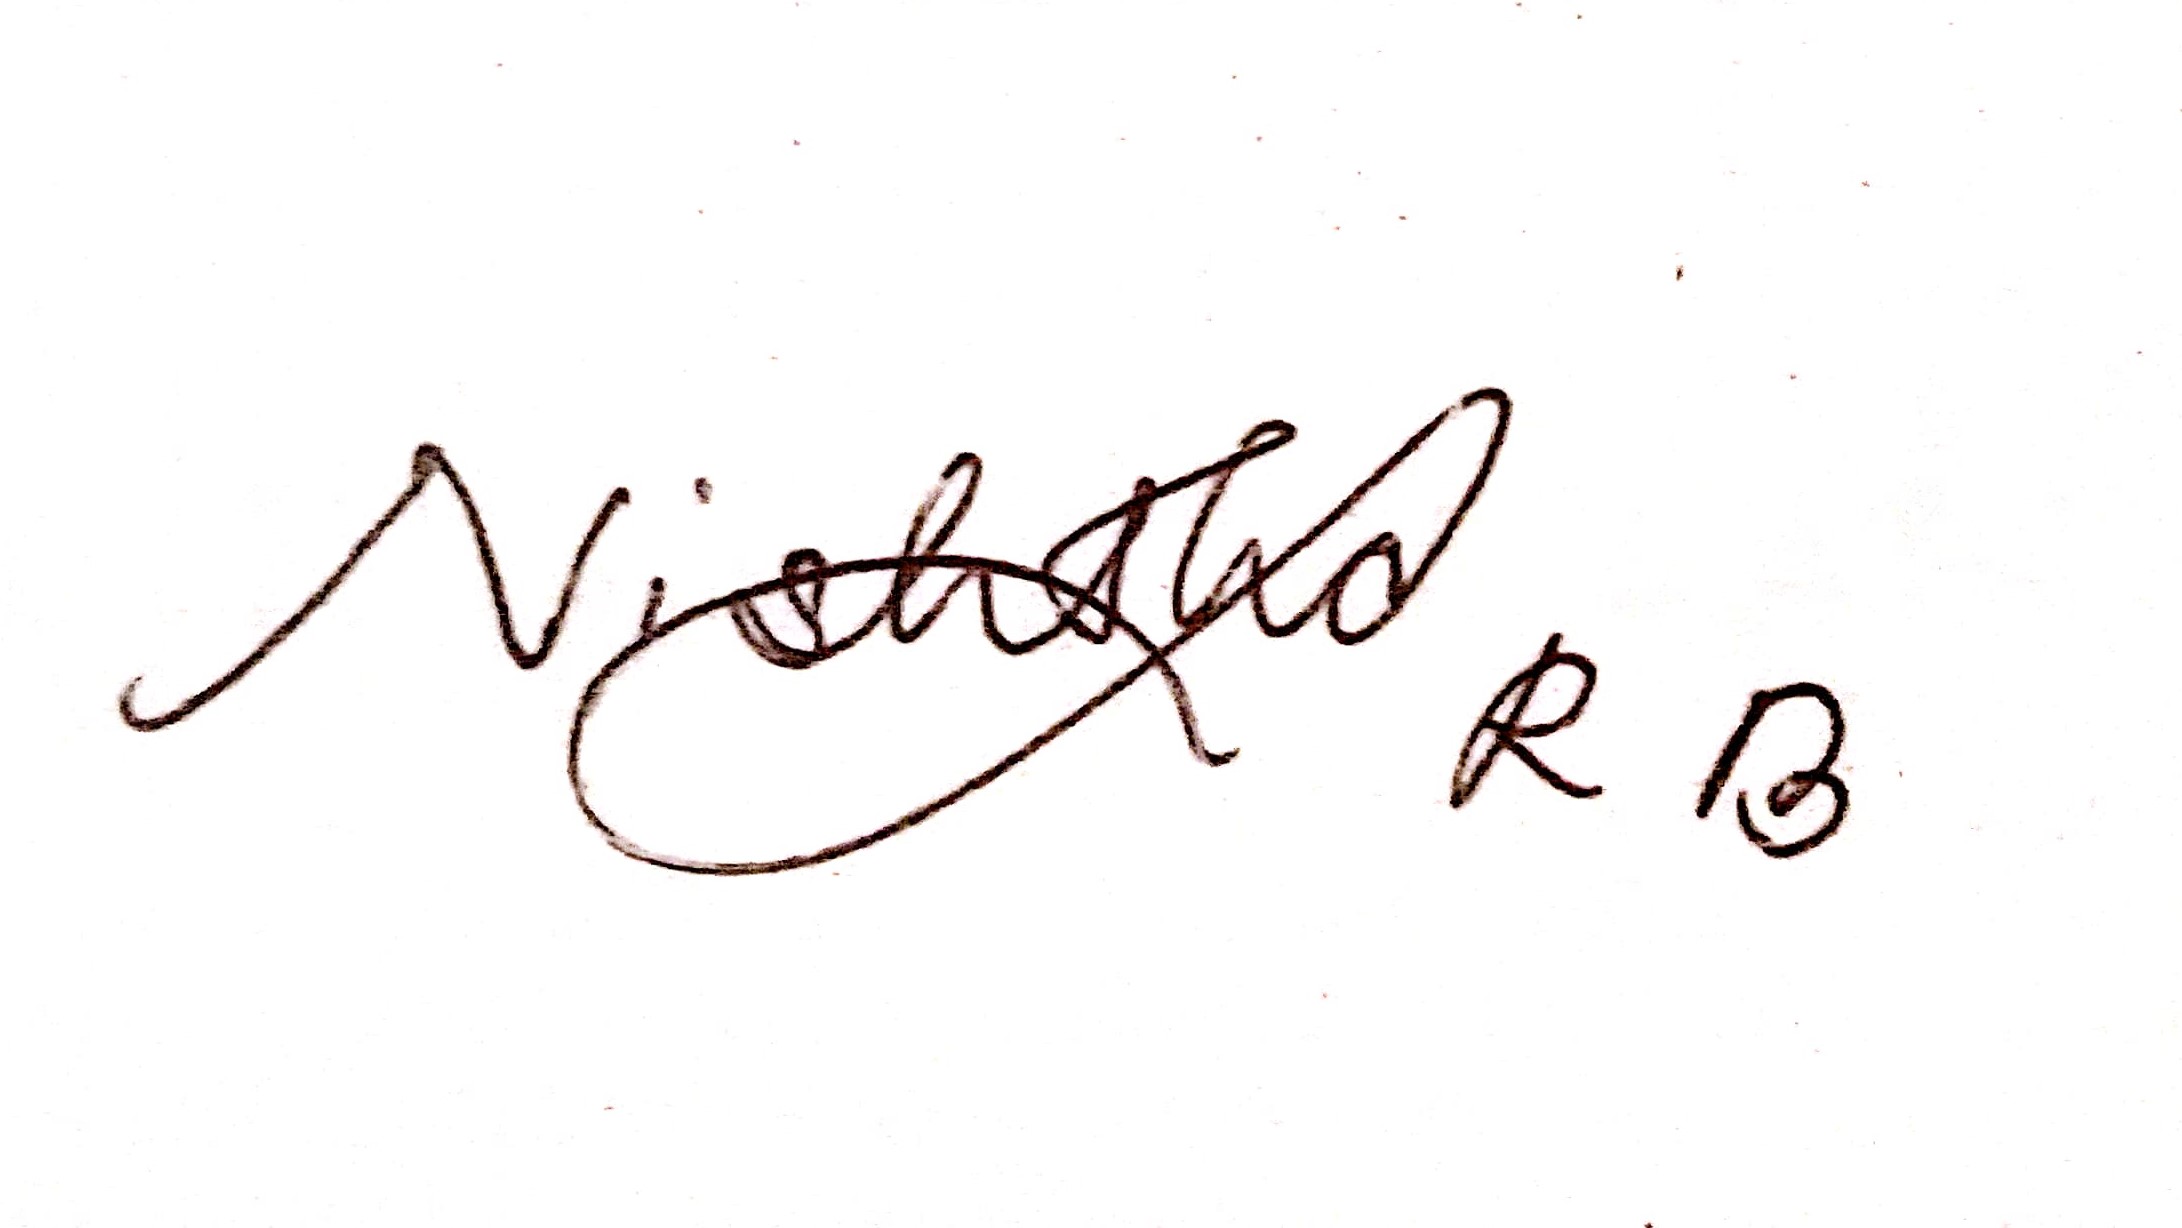 Nishtha R B